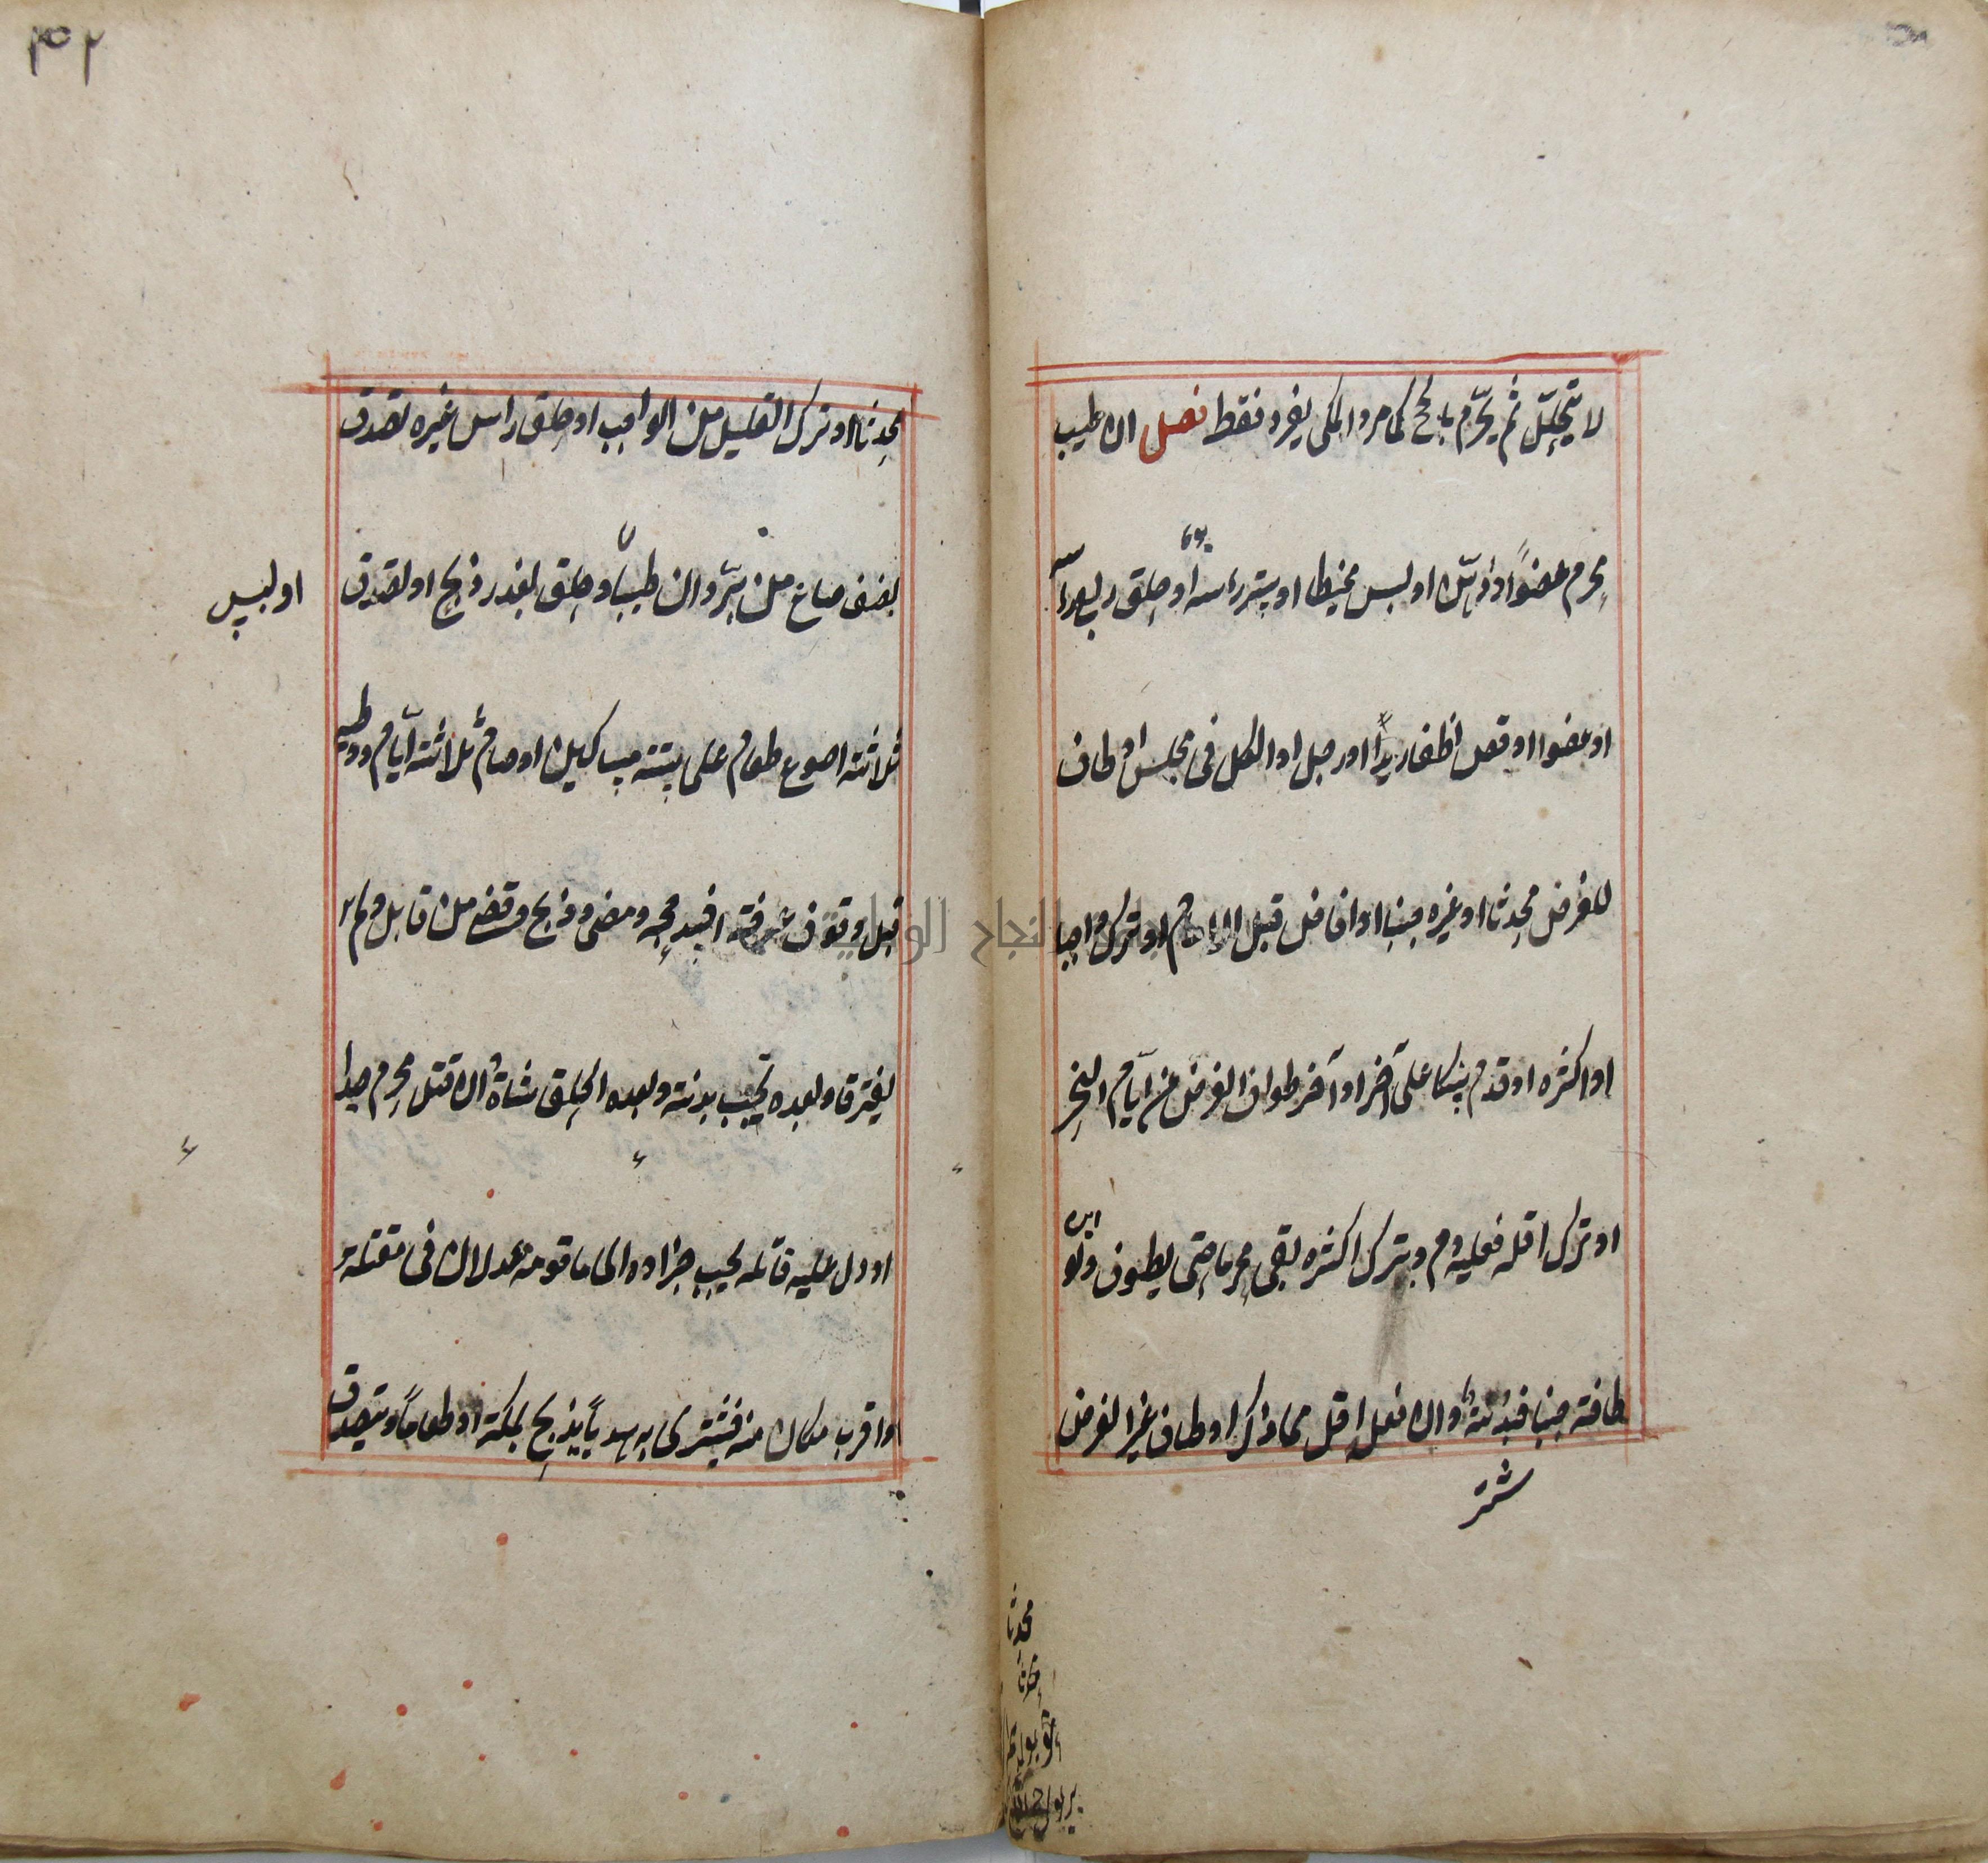 لا يتحلّل ثم يحرّم بالحج كما مر والمكى يفرد فقط فصل ان طيب
محرم عضواً او ادّهن او لبس مخيطا او ستر رأسه او حلق ربع رأسه
يوما
او عضوا او قص اظفار يداً او رجل او الكل فى مجلس او طاف
للفرض محدثا او غيره جنبا او افاض قبل الامام او ترك واجبا
او اكثره او قدم نسكا على آخر او آخر طواف الفرض عن ايّام النحر
او ترك اقله فعليه دم وبترك اكثره بقى محرما حتى يطوف ولو
طافه جنبا فبدنةٌ وان فعل اقل مما ذكر او طاف غير الفرض
محدثا
محدثا او ترك القليل من الواجب او حلق راس غيره تصدق
بنصف صاع من برّ وان طيب او حلق بعذر ذبح او تصدق
او لبس
ثلاثة اصوع طعام على ستة مساكين او صام ثلاثة ايّام ووطيه
قبل وقوف عرفة افسد حجه ومضى وذبح وقضى من قابل ولم
يفترقا وبعده تجب بدنة وبعد الحلق شاةٌ ان قتل محرم صيدا
او دل عليه قاتله يجب جزاءه اى ما قومه عدلان فى مقتله
او اقرب مكان منه فيشترى به هدياً يذبح بمكة او طعاماً ويتصدق
النجاح الوطنية
٣٢